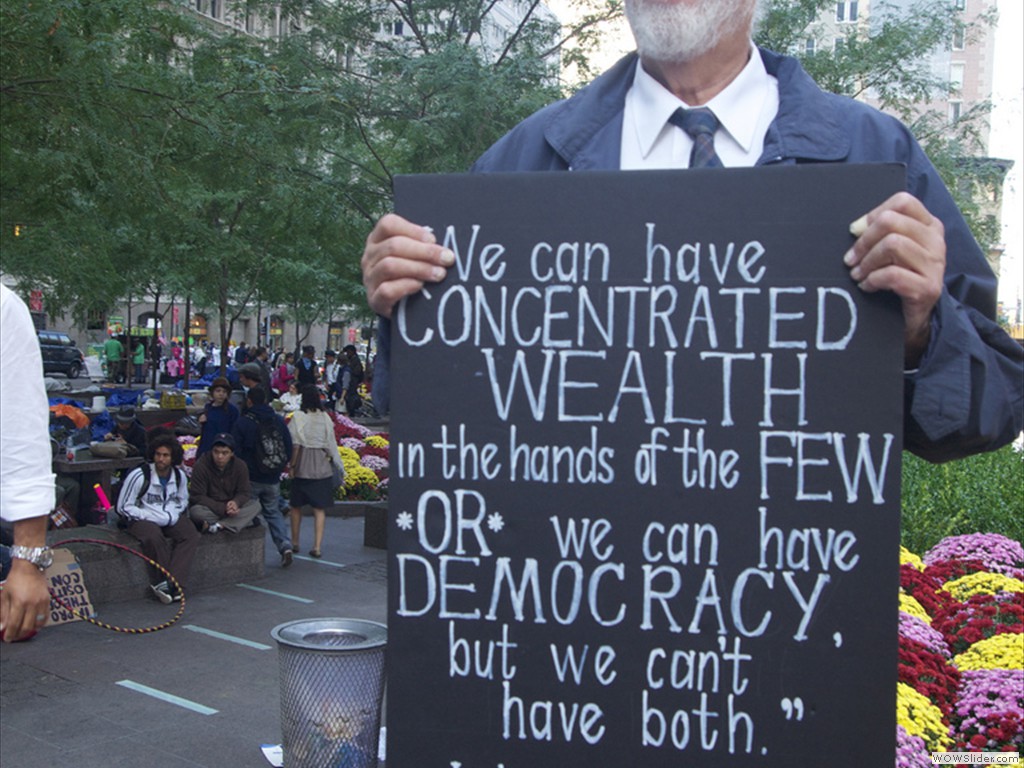 We can have
CONCENTRATED
WEALTH
in the hands of the FEW
*OR* we can have
DEMOCRACY,
but we can't
have both."
WOWSlider.com